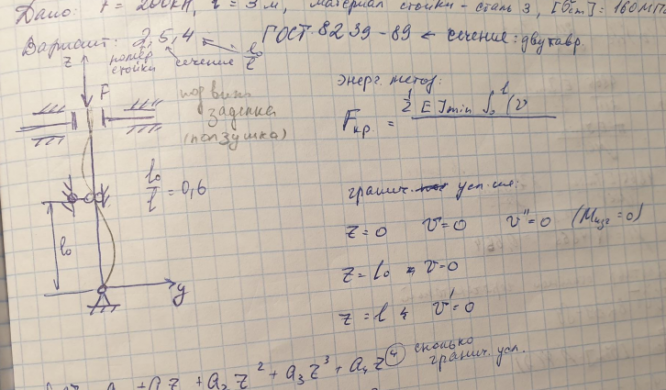 Дано: F = 200кН, l = 3 м, материал стойки - сталь 3, [σст] = 160 МПа
Вариант: 2, 5, 4 l0/l ГОСТ 8239-89 ← сечение: двутавр.
номер стойки сечение
z
F
подвиж. заделка (ползушка)
l0/l = 0,6
l0
y
Энерг метод:
Fкр. = 1/2 E Jmin ∫0 l (v
гранич. усл-ия:
z=0 v=0 v''=0 (Mизг=0)
z=l0 v=0
z=l v'=0
+ a1z + a2z² + a3z³ + a4z⁴ сколько гранич. усл.